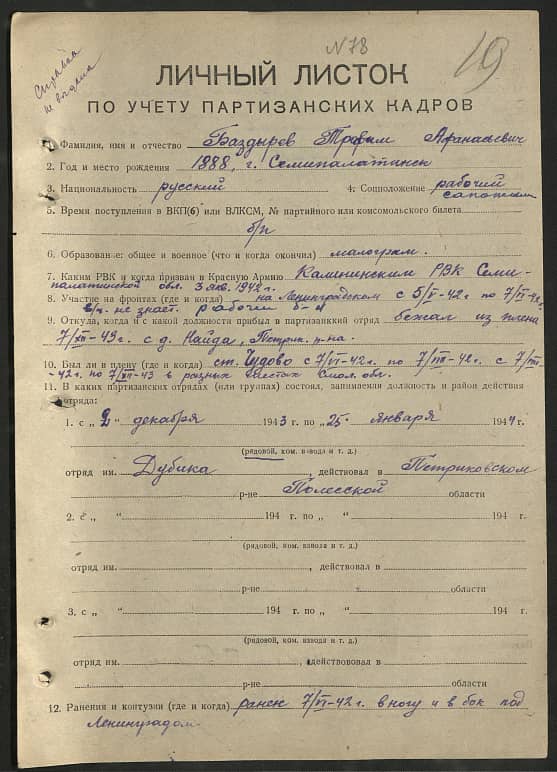 №78
19
Справка
не выдана
ЛИЧНЫЙ ЛИСТОК
ПО УЧЕТУ ПАРТИЗАНСКИХ КАДРОВ
1. Фамилия, имя и отчество Баздырев Трофим Афанасьевич
2. Год и место рождения 1888, г. Семипалатинск
3. Национальность русский 4. Соцположение рабочий
сапожник
5. Время поступления в ВКП(б) или ВЛКСМ, № партийного или комсомольского билета
б/п
6. Образование: общее и военное (что и когда окончил) малограм.
7. Каким РВК и когда призван в Красную Армию Калининским РВК Семи-
палатинской обл. 3 янв. 1942 г.
8. Участие на фронтах (где и когда) на Ленинградском с 5/V-42 г. по 7/VI-42 г.
в/ч не знает. рабочий б-н
9. Откуда, когда и с какой должности прибыл в партизанский отряд бежал из плена
7/XII-43 г. с д. Найда, Петрик. р-на.
10. Был ли в плену (где и когда) ст. Чудово с 7/VI-42 г. по 7/VIII-42 г. с 7/VIII
-42 г. по 7/XII-43 в разных местах Смол. обл.
11. В каких партизанских отрядах (или группах) состоял, занимаемая должность и район действия
отряда:
1. с „2 декабря 1943 г. по „25“ января 1944 г.
(рядовой, ком. взвода и т. д.)
отряд им. Дубика, действовал в Петриковском
р-не Полесской области
2. с „ “ 194 г. по „ “ 194 г.
(рядовой, ком. взвода и т. д.)
отряд им. , действовал в
р-не области
3. с „ “ 194 г. по „ “ 194 г.
(рядовой, ком. взвода и т. д.)
отряд им. , действововал в
р-не области
12. Ранения и контузии (где и когда) ранен 7/VI-42 г. в ногу и в бок под
Ленинградом.